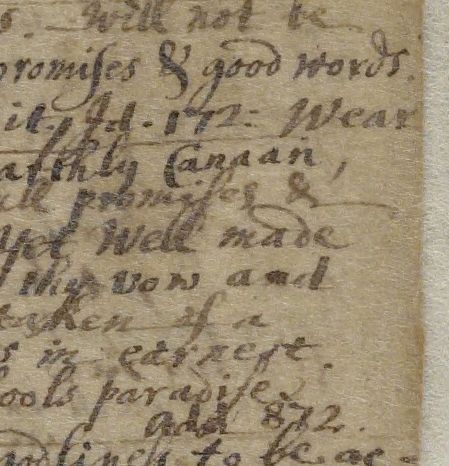 s. Will not be
promises & good words.
it. Ad. 172: Wear
arthly Canaan,
promises &
yet Well made
thy vow and
taken of a
s in earnest.
ools paradise.
add 872.
odliness to be ac-